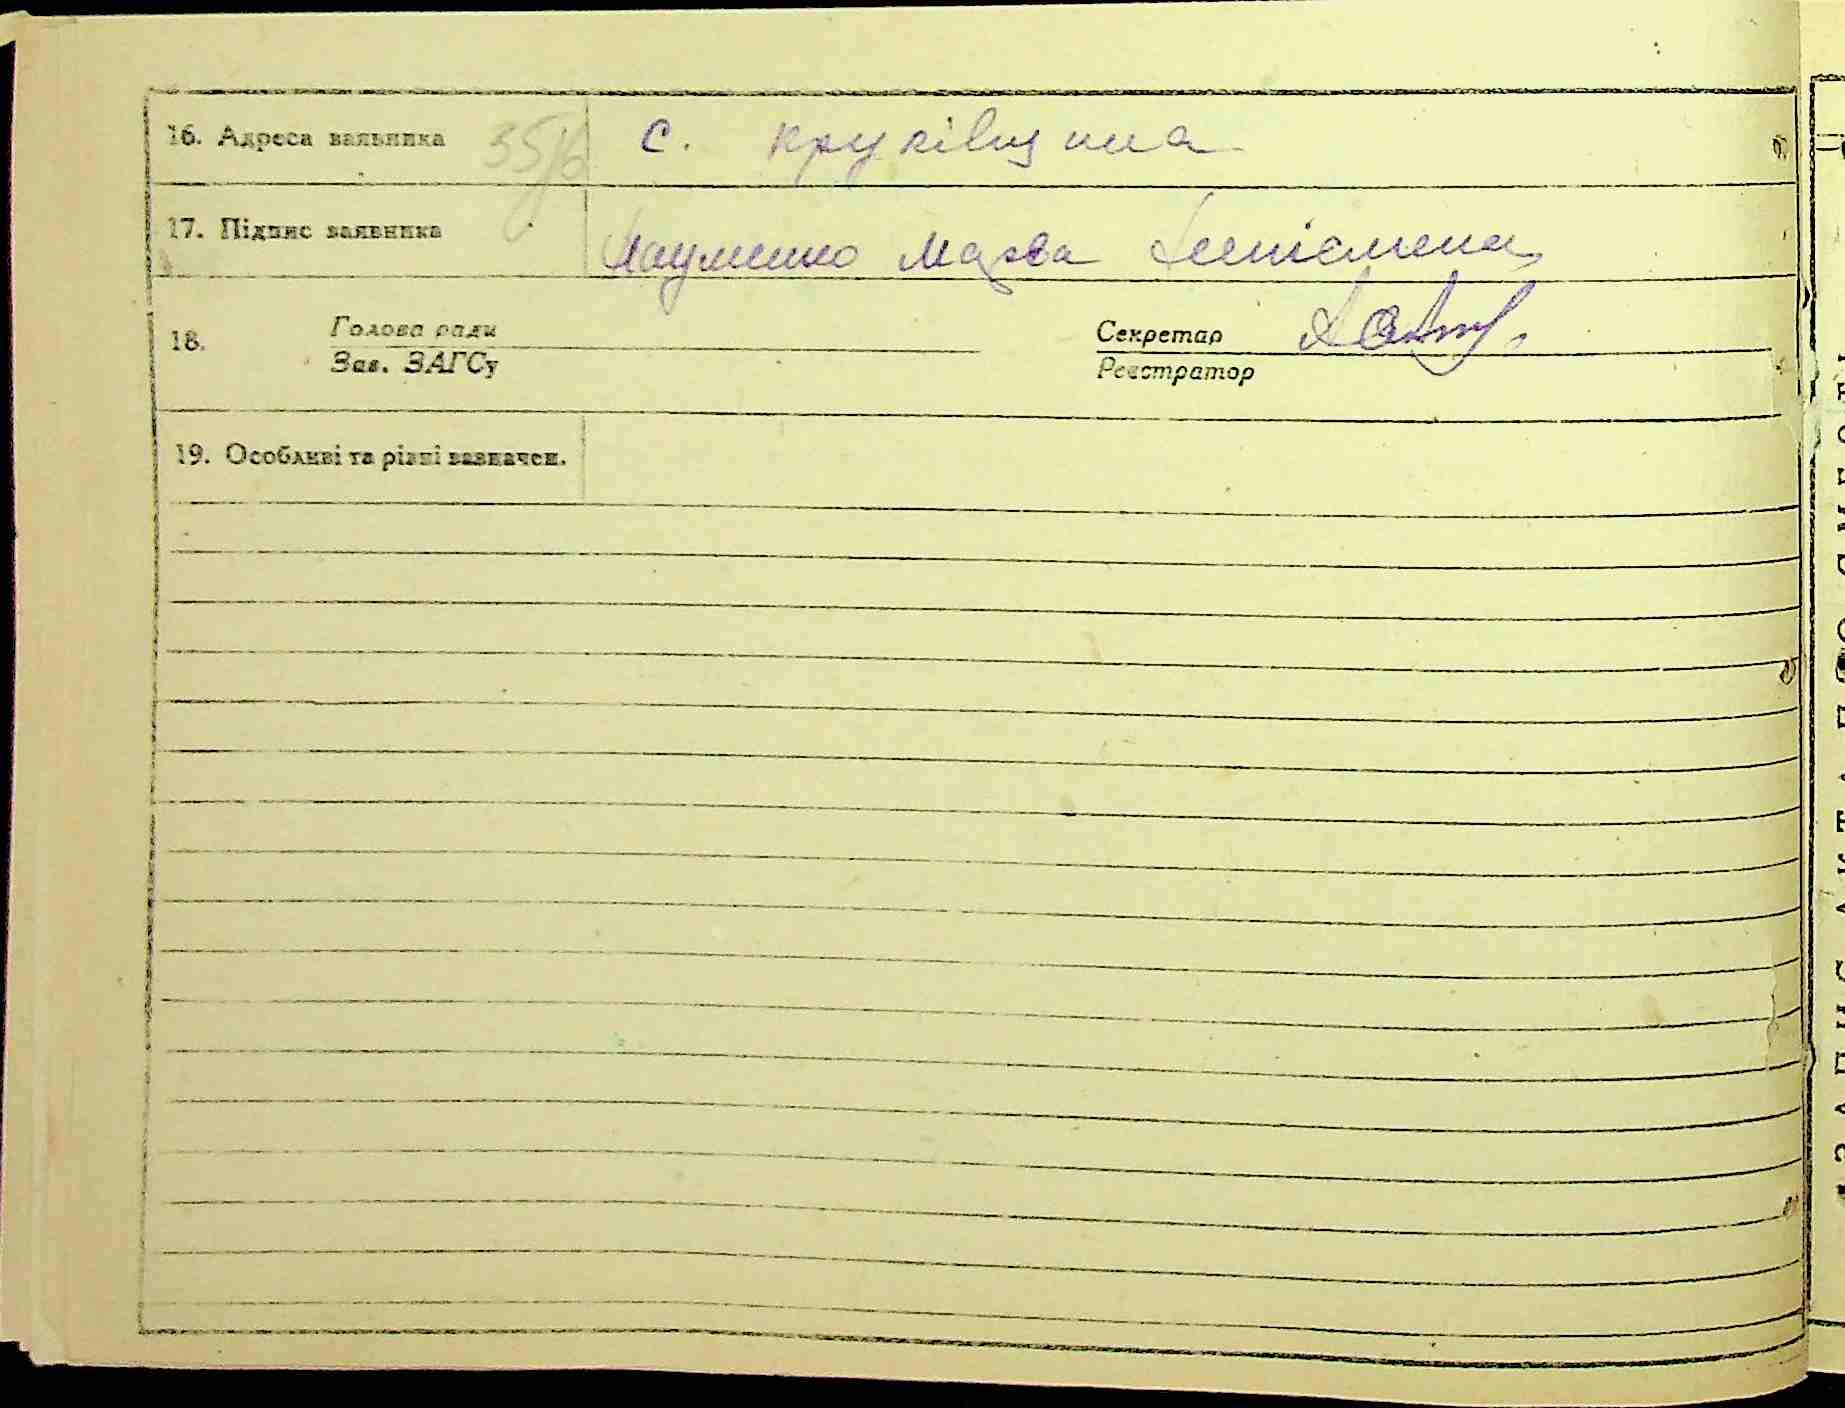 16. Адреса заявника 35/6 с. Круківщина
17. Підпис заявника Науменко Марва
18. Голова ради Секретар
Зав. ЗАГСу Реєстратор
19. Особливі та різні зазначен.